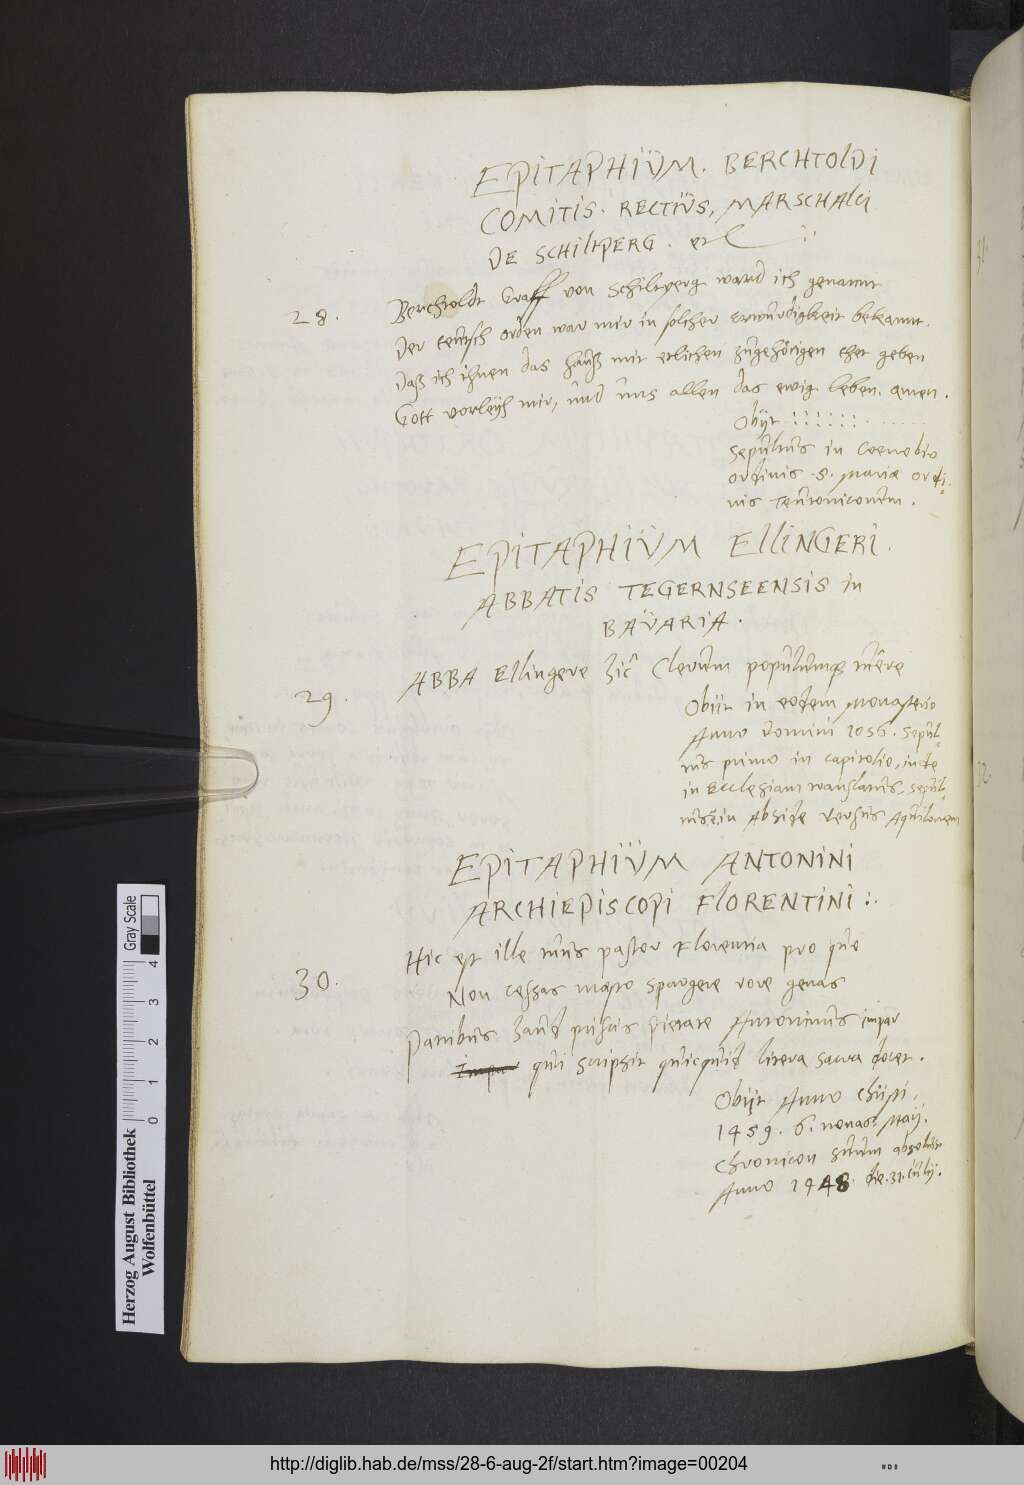 EPITAPHIÜM. BERCHTOLDI
COMITIS. RECTIÜS, MARSCHALCI
DE SCHILTPERG. etc
28.
Berchtoldt Graff von Schiltperg ward ich genannt
Der teutsch orden war mir in solcher erwürdigkeit bekannt.
Daß ich ihnen das hauß mit etlichen zugehörigen thet geben
Gott verleyh mir, und uns allen das ewig leben. amen.
Obijt : : : : : :
Sepultus in Coenobio
ordinis S. Mariæ ordi-
nis Teutonicorum.
EPITAPHIÜM ELLINGERI.
ABBATIS TEGERNSEENSIS in
BAÜARIA.
29.
ABBA Ellingere hic Clerum populumque
Obiit in eodem Monasterio
Anno Domini 1056. Sepul-
tus primo in capitolio, inde
in Ecclesiam translatus, sepul-
tus in Abside versus Aquilonem
EPITAPHIÜM ANTONINI
ARCHIEPISCOPI FLORENTINI :.
30.
Hic est ille tuus pastor Florentia pro quo
Non cessas mæsto spargere rore genas
Patribus haud priscis pietate Antoninus impar
Impar qui scripsit quicquid litera sacra docet.
Obijt Anno Christi,
1459. 6. nonas. Maij.
Chronicon suum absoluit
Anno 1448. die. 31. Iulij.
Herzog August Bibliothek
Wolfenbüttel
0 1 2 3 4
Gray Scale
http://diglib.hab.de/mss/28-6-aug-2f/start.htm?image=00204